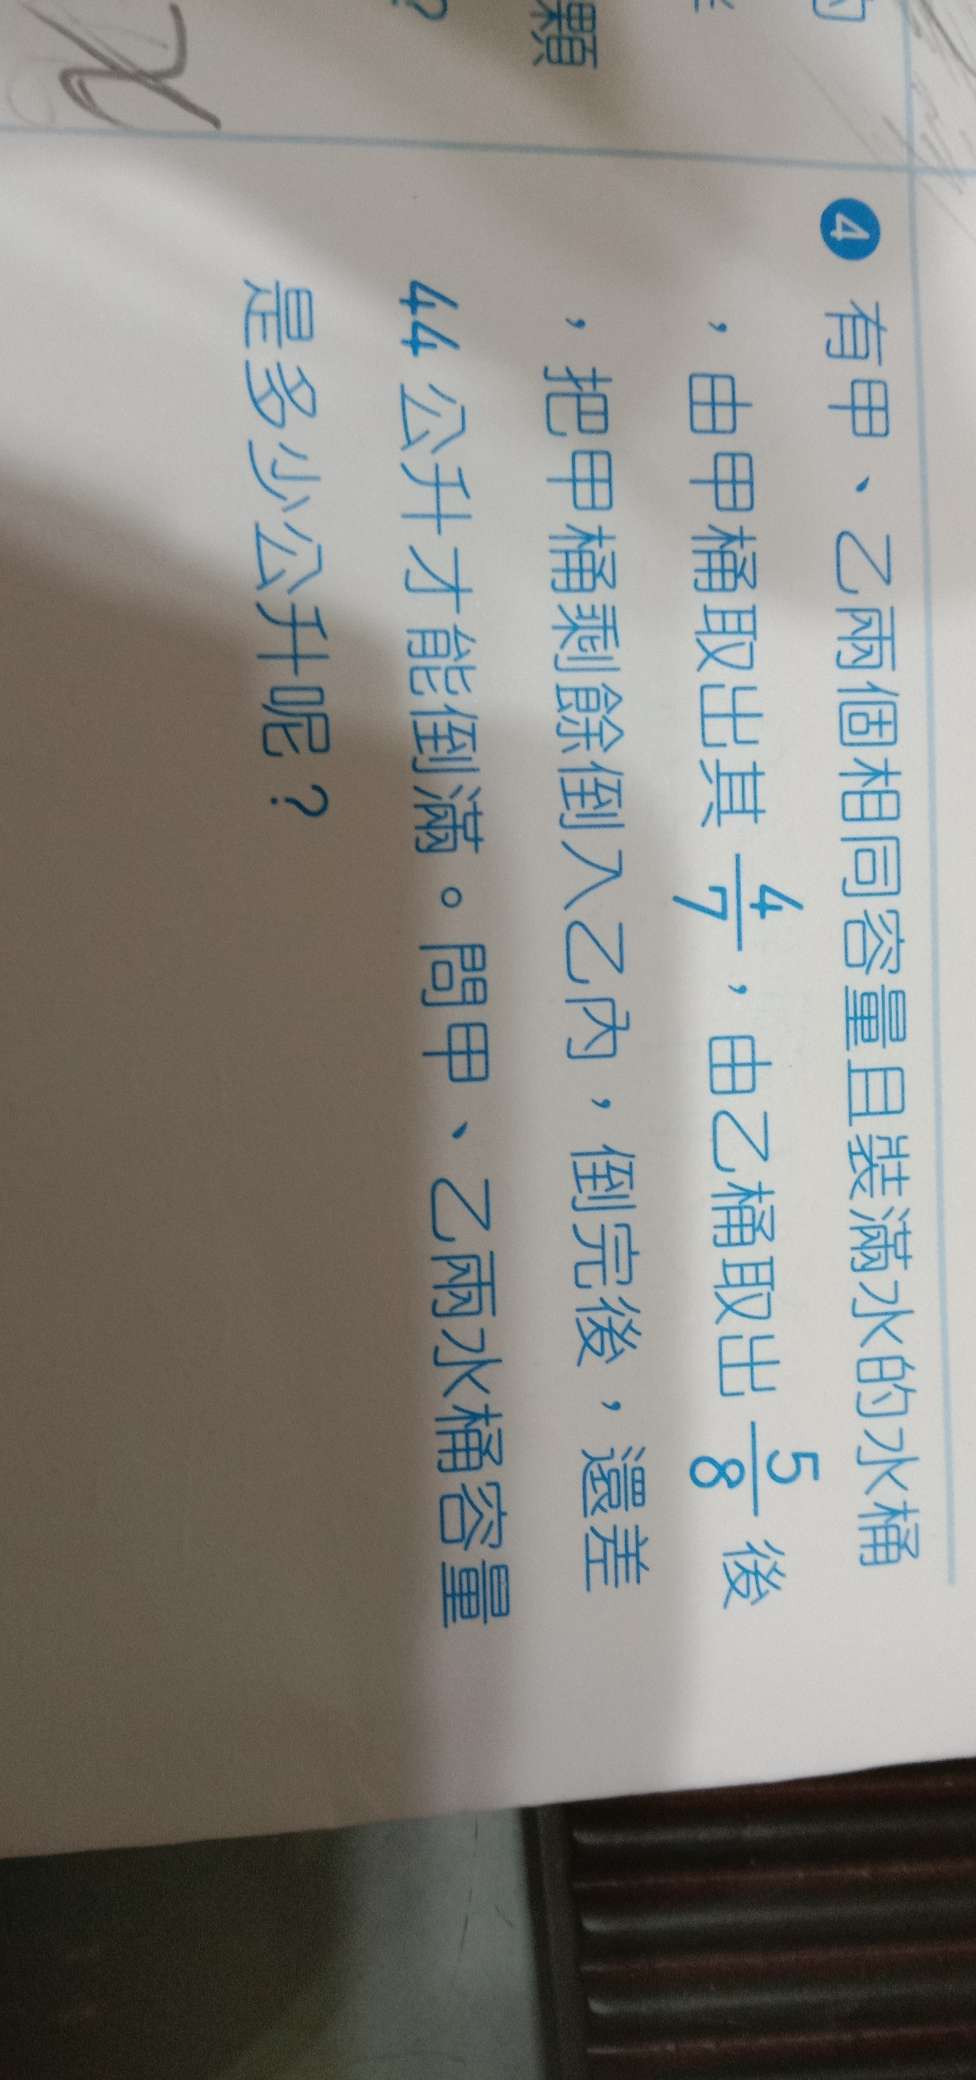 的
顆
?
x
4 有甲、乙兩個相同容量且裝滿水的水桶
，由甲桶取出其 4/7，由乙桶取出 5/8 後
，把甲桶剩餘倒入乙內，倒完後，還差
44 公升才能倒滿。問甲、乙兩水桶容量
是多少公升呢？